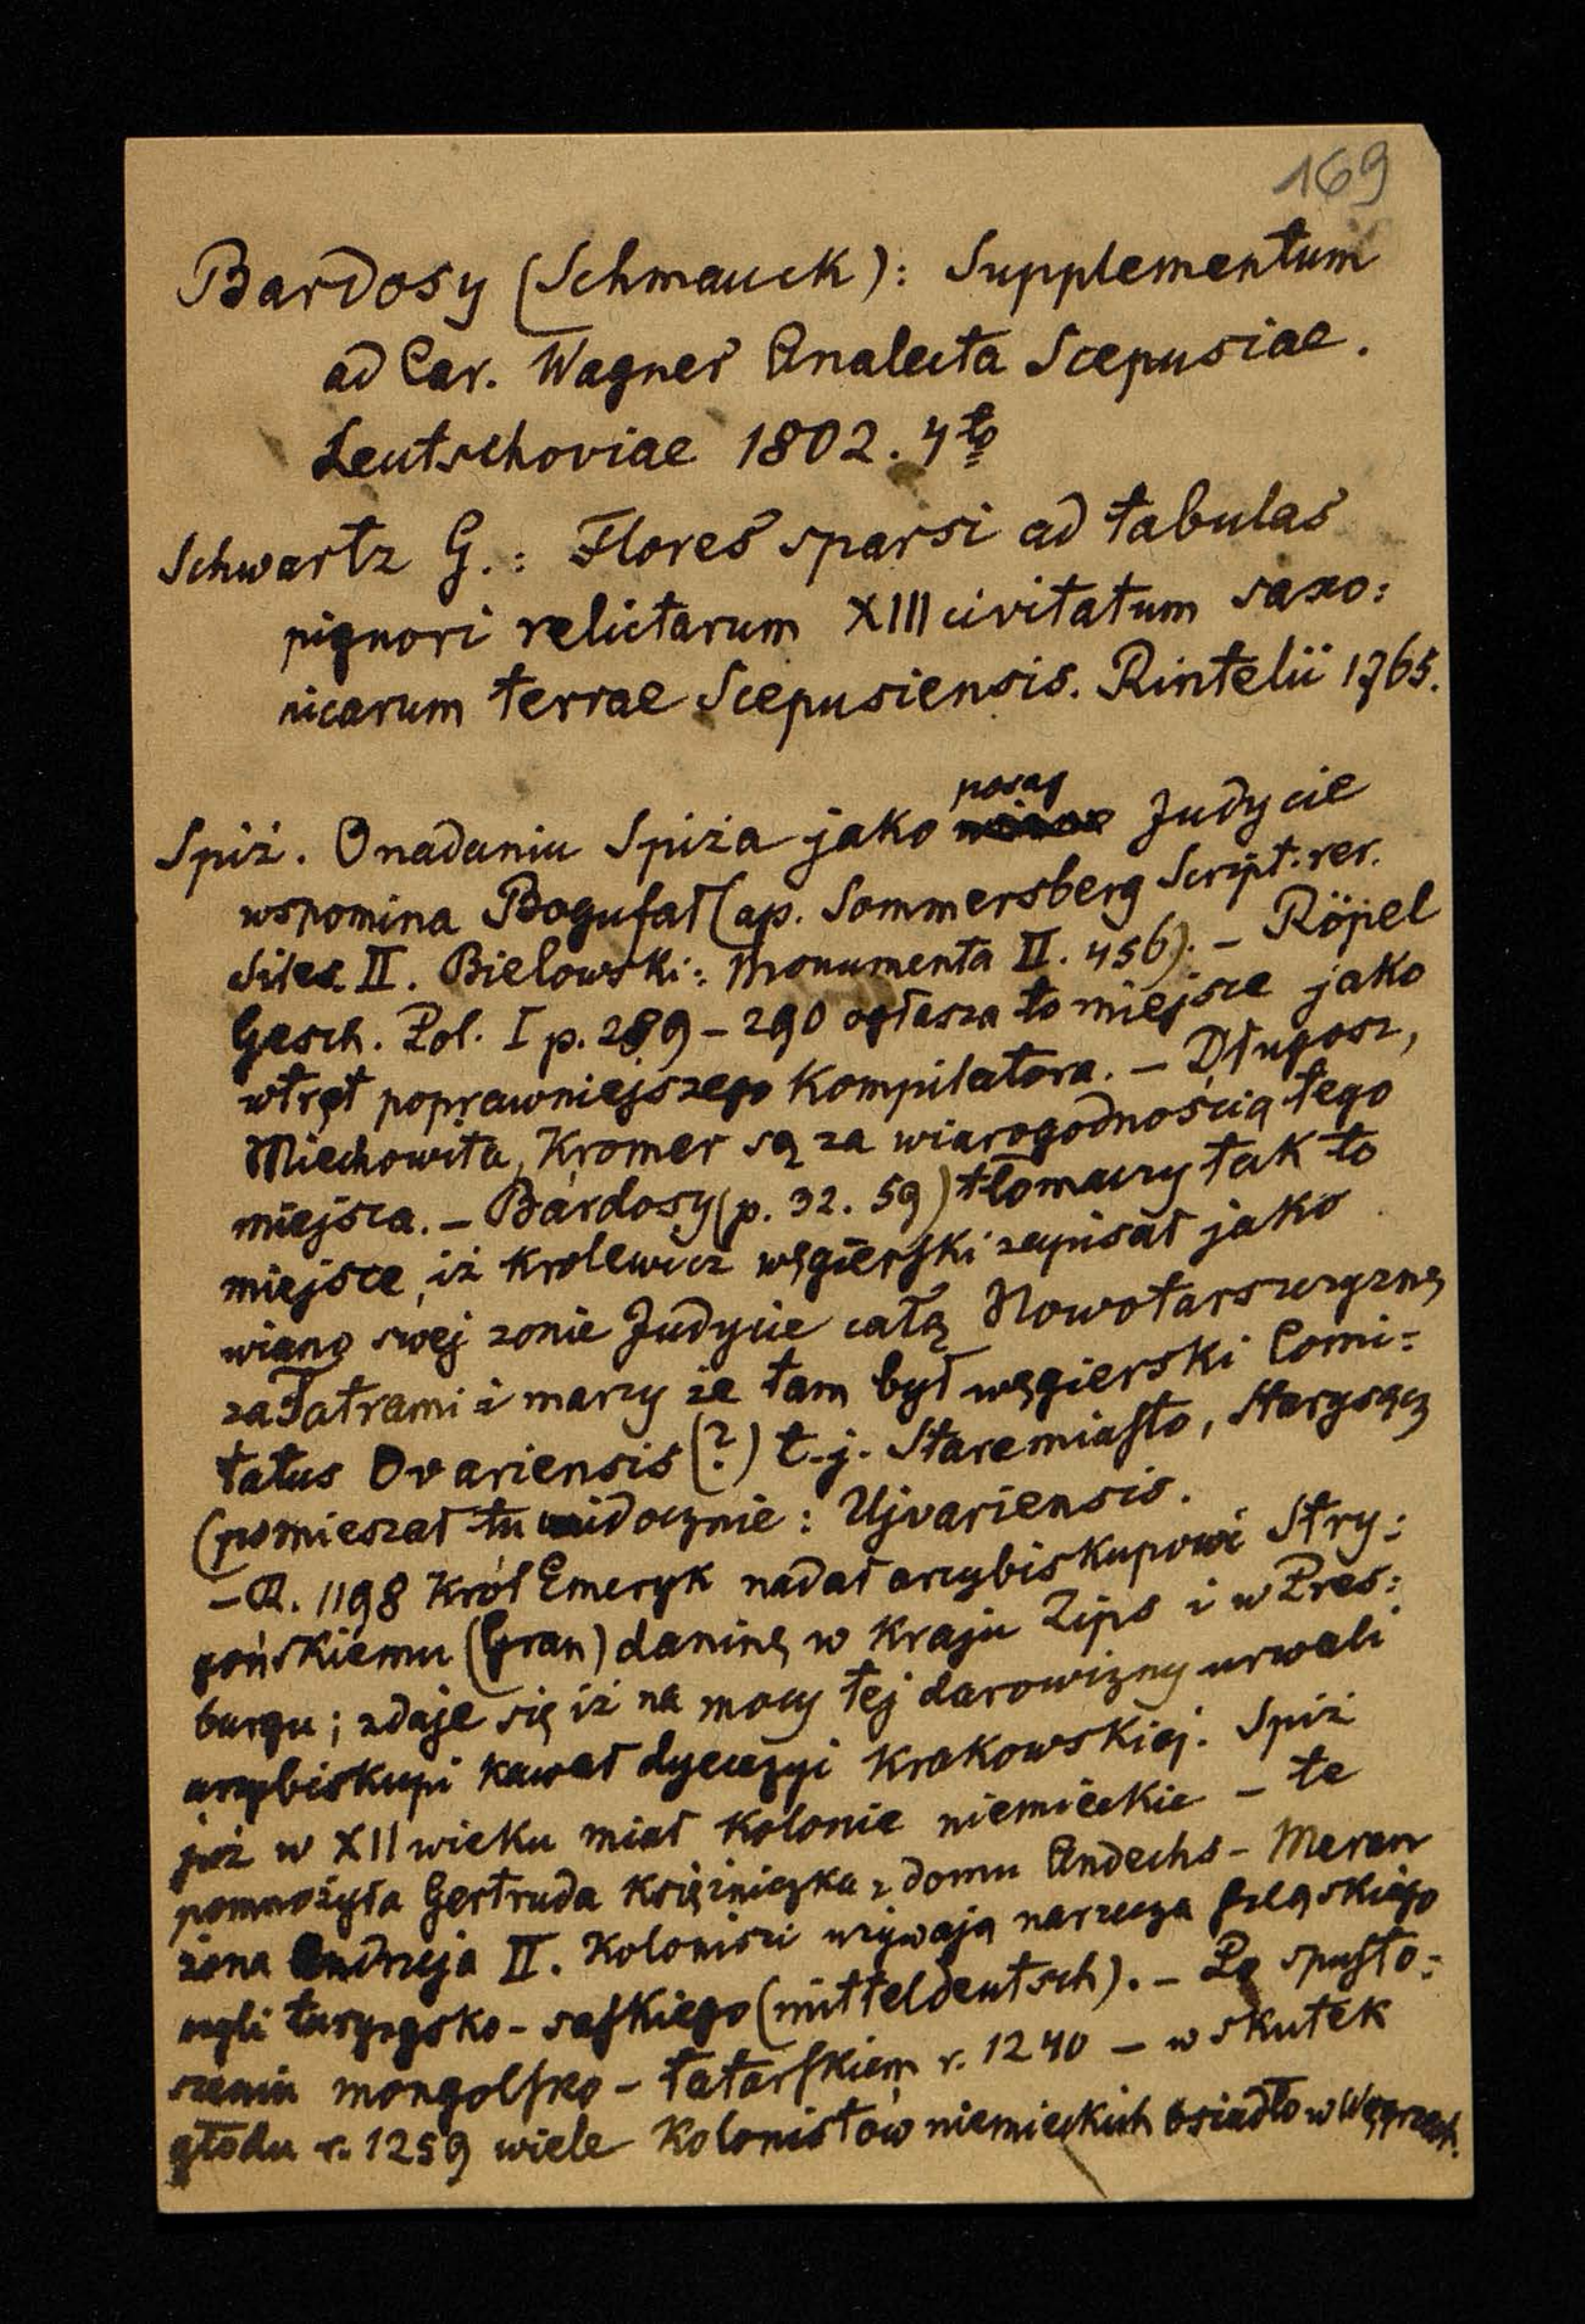 169
Bardosy (Schmauck): Supplementum
ad Car. Wagner Analecta Scepusiae.
Leutschoviae 1802. 4to
Schwartz G.: Flores sparsi ad tabulas
pignori relictarum XIII civitatum saxo:
nicarum terrae Scepusiensis. Rintelii 1765.
Spiż. O nadaniu Spiża jako posag Judycie
wspomina Bogufał (ap. Sommersberg Script. rer.
Siles. II. Bielowski: Monumenta II. 456). – Röpel
Gesch. Pol. I p. 289–290 ogłasza to miejsce jako
wtręt poprawniejszego kompilatora. – Długosz,
Miechowita, Kromer są za wiarogodnością tego
miejsca. – Bárdosy (p. 32. 59) tłomaczy tak to
miejsce, iż krolewicz węgierski zapisał jako
wiano swej żonie Judycie całą Nowotarszczyznę
za Tatrami i marzy że tam był węgierski Comi:
tatus Ovariensis (?) t.j. Staremiasto, Starysącz
(pomieszał tu widocznie: Ujvariensis.
– R. 1198 Król Emeryk nadał arcybiskupowi Stry:
gońskiemu (Gran) daninę w kraju Zips i w Pres:
burgu; zdaje się iż na mocy tej darowizny urwali
arcybiskupi kawał dyecezyi Krakowskiej. Spiż
już w XII wieku miał kolonie niemieckie – te
pomnożyła Gertruda księżniczka z domu Andechs – Meran
żona Andrzeja II. Koloniści używają narzecza szląskiego
czyli turyngsko-saskiego (mitteldeutsch). – Po spusto:
szeniu mongolsko-tatarskiem r. 1240 – w skutek
głodu r. 1259 wiele kolonistów niemieckich osiadło w Węgrzech.